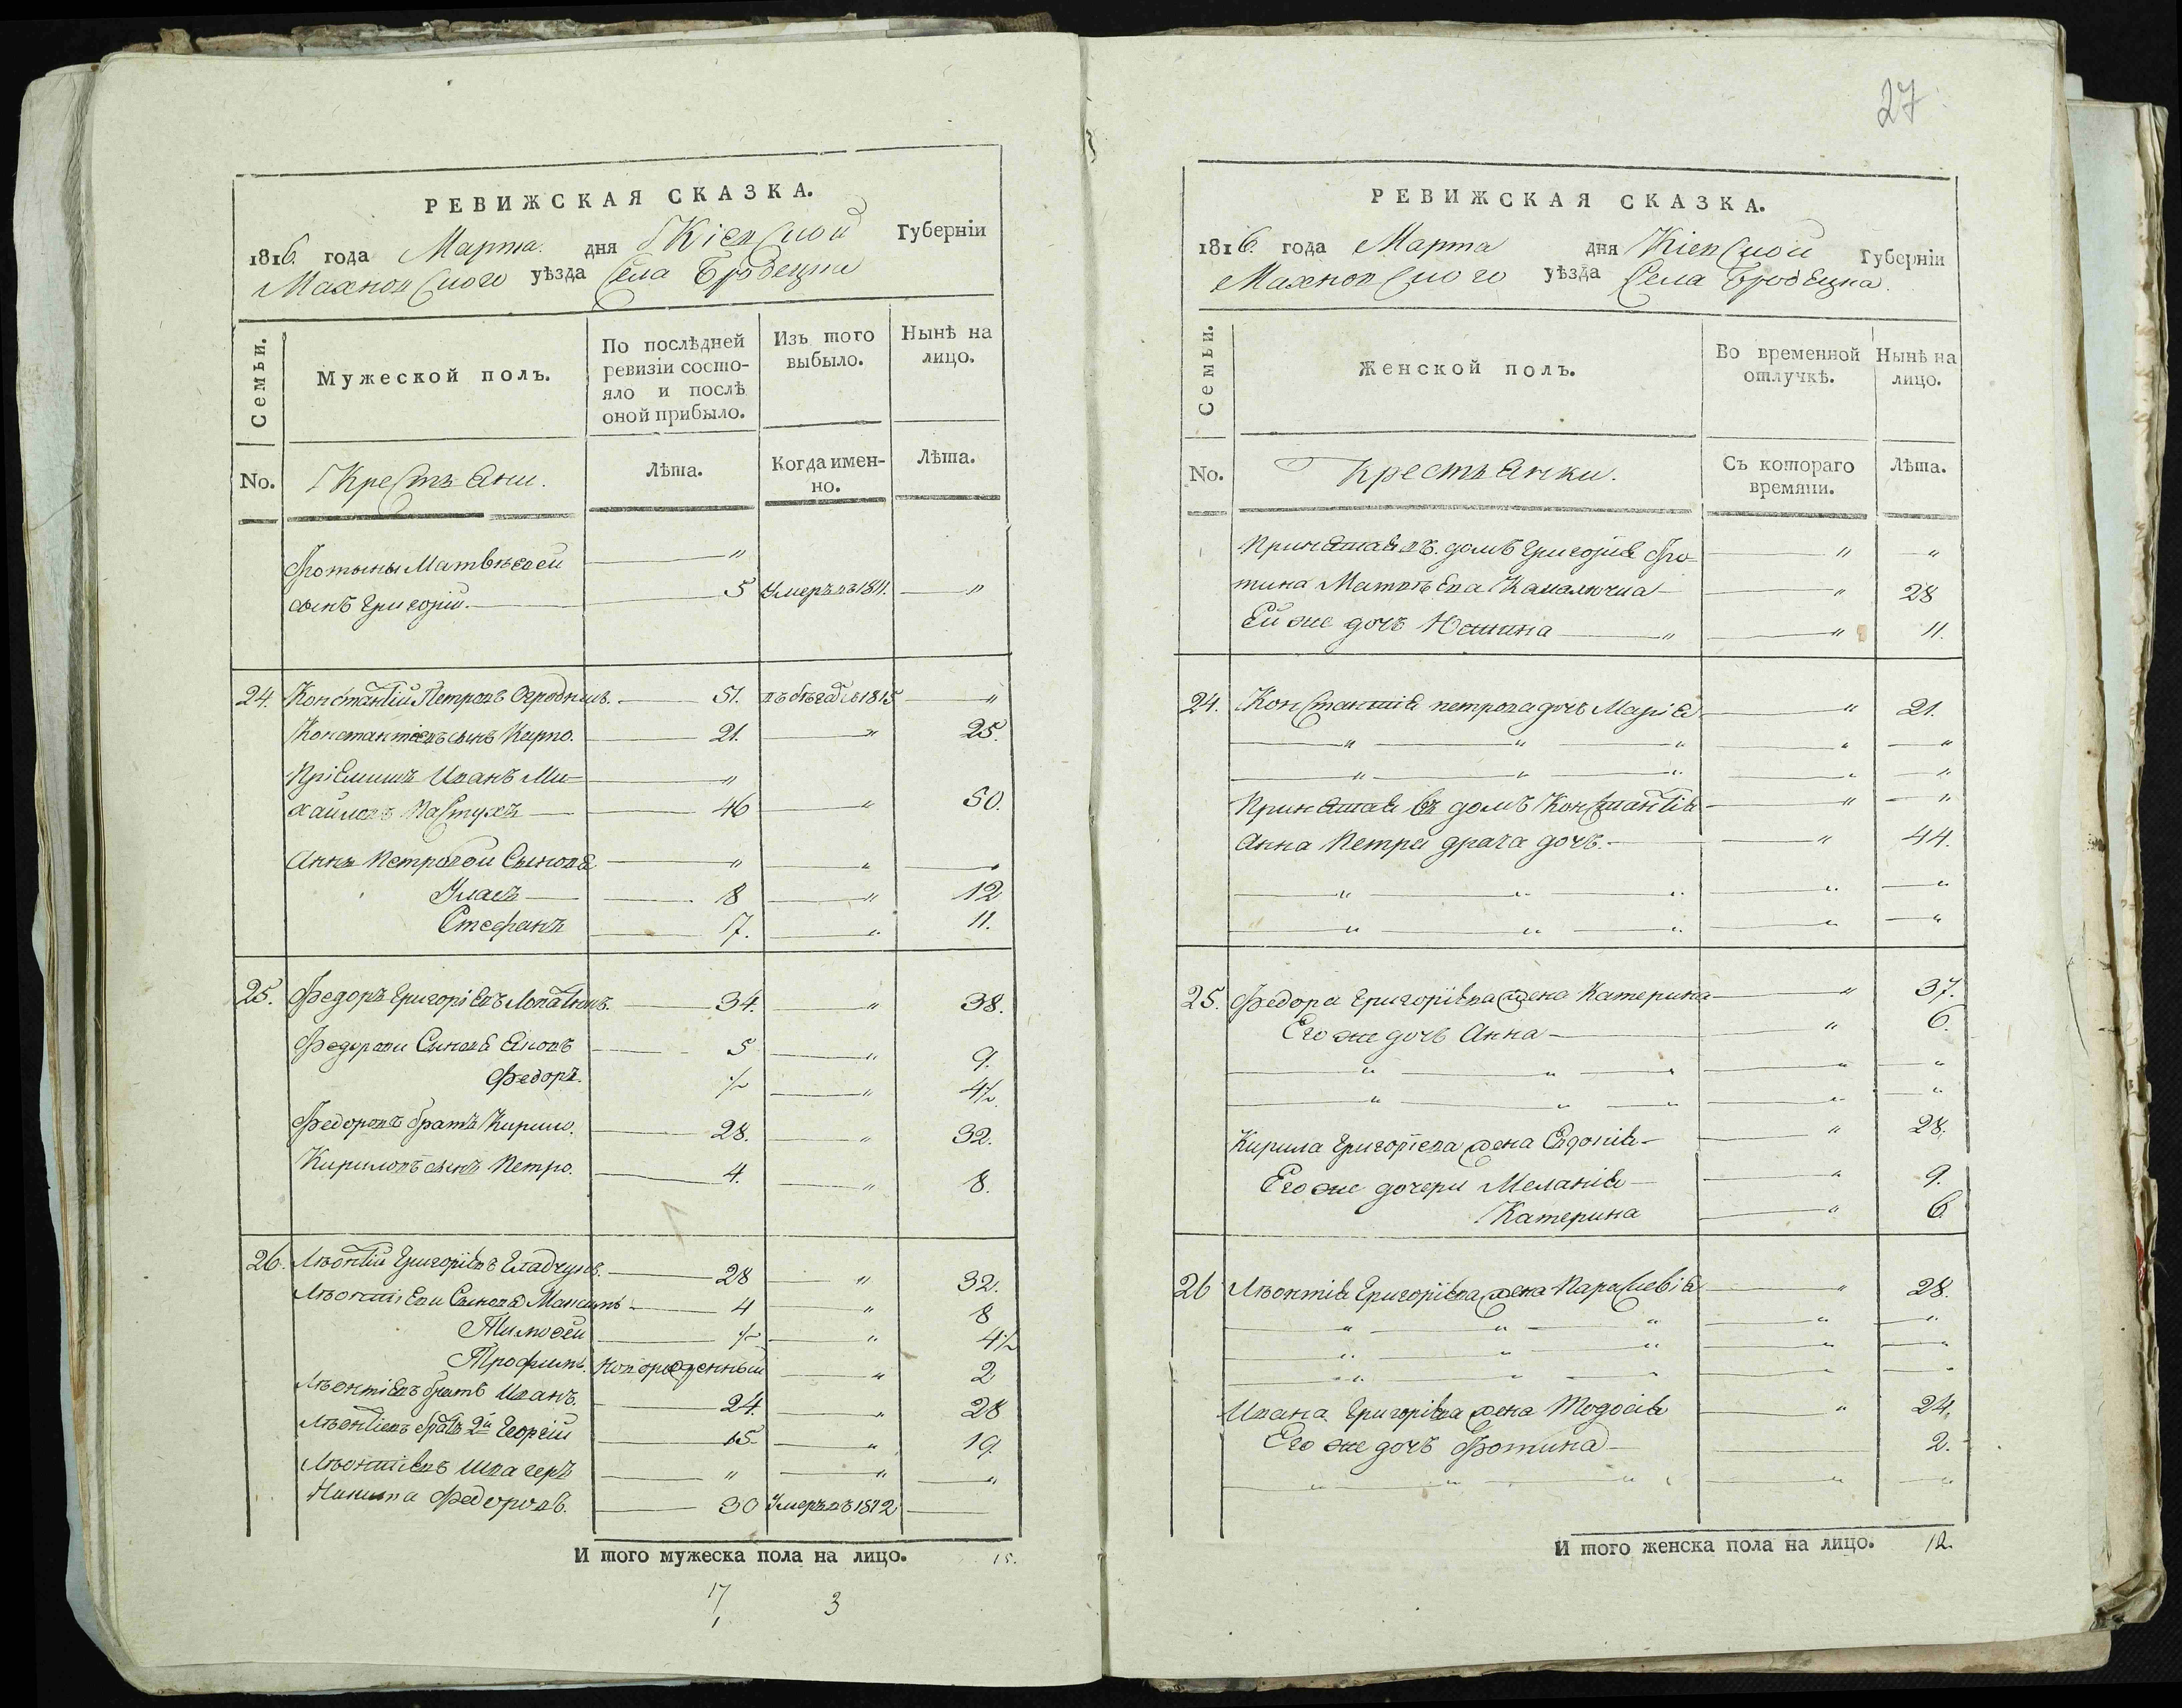 РЕВИЖСКАЯ СКАЗКА.
1816. года Марта. дня Кіевской Губерніи
Махновского уѣзда Села Бродецка
Семьи. Мужеской полъ. По послѣдней ревизіи состояло и послѣ оной прибыло. Изъ того выбыло. Нынѣ на лицо.
No. Крестьяни. Лѣта. Когда именно. Лѣта.
Фотыны Матвѣевой — "
сынъ Григорій. — 5 Умеръ въ 1811. — "
24. Константій Петровъ Огродникъ. — 51. въ бѣгахъ 1815 — "
Константіевъ сынъ Карпо. — 21. — " 25.
Пріемишъ Иванъ Ми= — "
хайловъ Пастухъ — 46 — " 50.
Анны Петровой Сыновя — " — " —
Уласъ — 8 — " 12
Стефанъ — 7. — " 11.
25. Федоръ Григоріевъ — 34. — " 38.
Федорови Сыновя Яковъ — 5 — " 9.
Федоръ. ½ — " 4½
Федоровъ братъ Кирило. — 28. — " 32.
Кириловъ сынъ Петро. — 4. — " 8.
26. Лѣонтій Григоріевъ Гладчукъ. — 28 — " 32.
Лѣонтіеви Сыновя Максимъ — 4 " 8
Тимофей — ½ — " 4½
Трофимъ. Новорожденный — " 2
Лѣонтіевъ братъ Иванъ. — 24. — " 28
Лѣонтіевъ братъ 2й Георгій — 15 — " 19.
Лѣонтіевъ Швагеръ — " — " — "
Никита Федоровъ. — 30 Умеръ въ 1812 —
И того мужеска пола на лицо. 15.
17 3
1
27
РЕВИЖСКАЯ СКАЗКА.
1816. года Марта дня Кіевской Губерніи
Махновского уѣзда Села Бродецка.
Семьи. Женской полъ. Во временной отлучкѣ. Нынѣ на лицо.
No. Крестьянки. Съ котораго времяни. Лѣта.
Принятая въ домъ Григорія Фо= — " — "
тина Матвѣева — " 28
Ей же дочь Юстина — " — " 11.
24. Константія петрова дочь Марія — " 21.
— " — " — " — " — "
— " — " — " — " — "
Принятая въ домъ Константія — " — "
Анна Петра драча дочь. — " 44.
— " — " — " — " — "
— " — " — " — " — "
25. Федора Григоріева жена Катерина — " 37.
Его же дочь Анна — " 6.
— " — " — " — " — "
— " — " — " — " — "
Кирила Григоріева жена Евдокія — " 28.
Его же дочери Меланія — " 9.
Катерина — " 6
26 Лѣонтія Григоріева жена Параскевія — " 28.
— " — " — " — " — "
— " — " — " — " — "
— " — " — " — " — "
Ивана Григоріева жена Тодосія — " 24.
Его же дочь Фотина — 2.
— " — " — " — " — "
И того женска пола на лицо. 12.